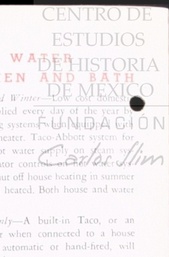 CENTRO DE
ESTUDIOS
DE HISTORIA
DE MEXICO
FUNDACIÓN
Carlos Slim
WATER
EN AND BATH
d Winter—Low cost domestic
plied every day of the year by
g systems
heater. Taco-Abbott system for
ot water supply on steam
control
out off house heating in summer
heated. Both house and water
nly—A built-in Taco, or an
r when connected to a house
automatic or hand-fired, will